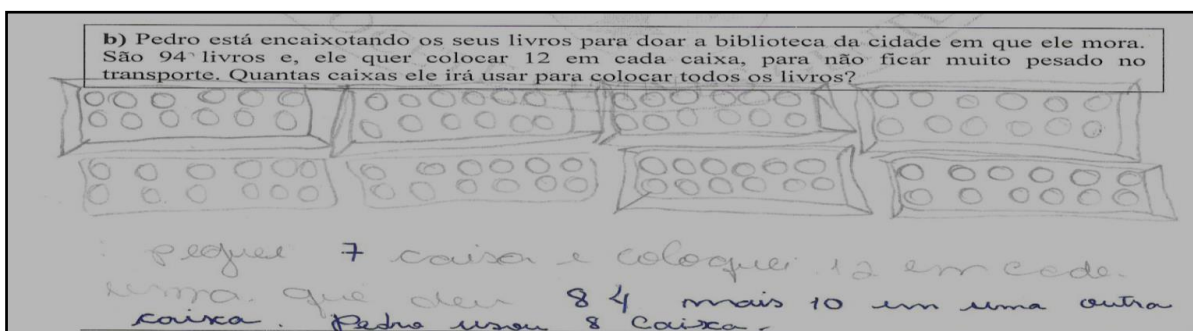 b) Pedro está encaixotando os seus livros para doar a biblioteca da cidade em que ele mora.
São 94 livros e, ele quer colocar 12 em cada caixa, para não ficar muito pesado no
transporte. Quantas caixas ele irá usar para colocar todos os livros?
peguei 7 caixa e coloquei 12 em cada
uma. que deu 84 mais 10 em uma outra
caixa. Pedro usou 8 caixa.